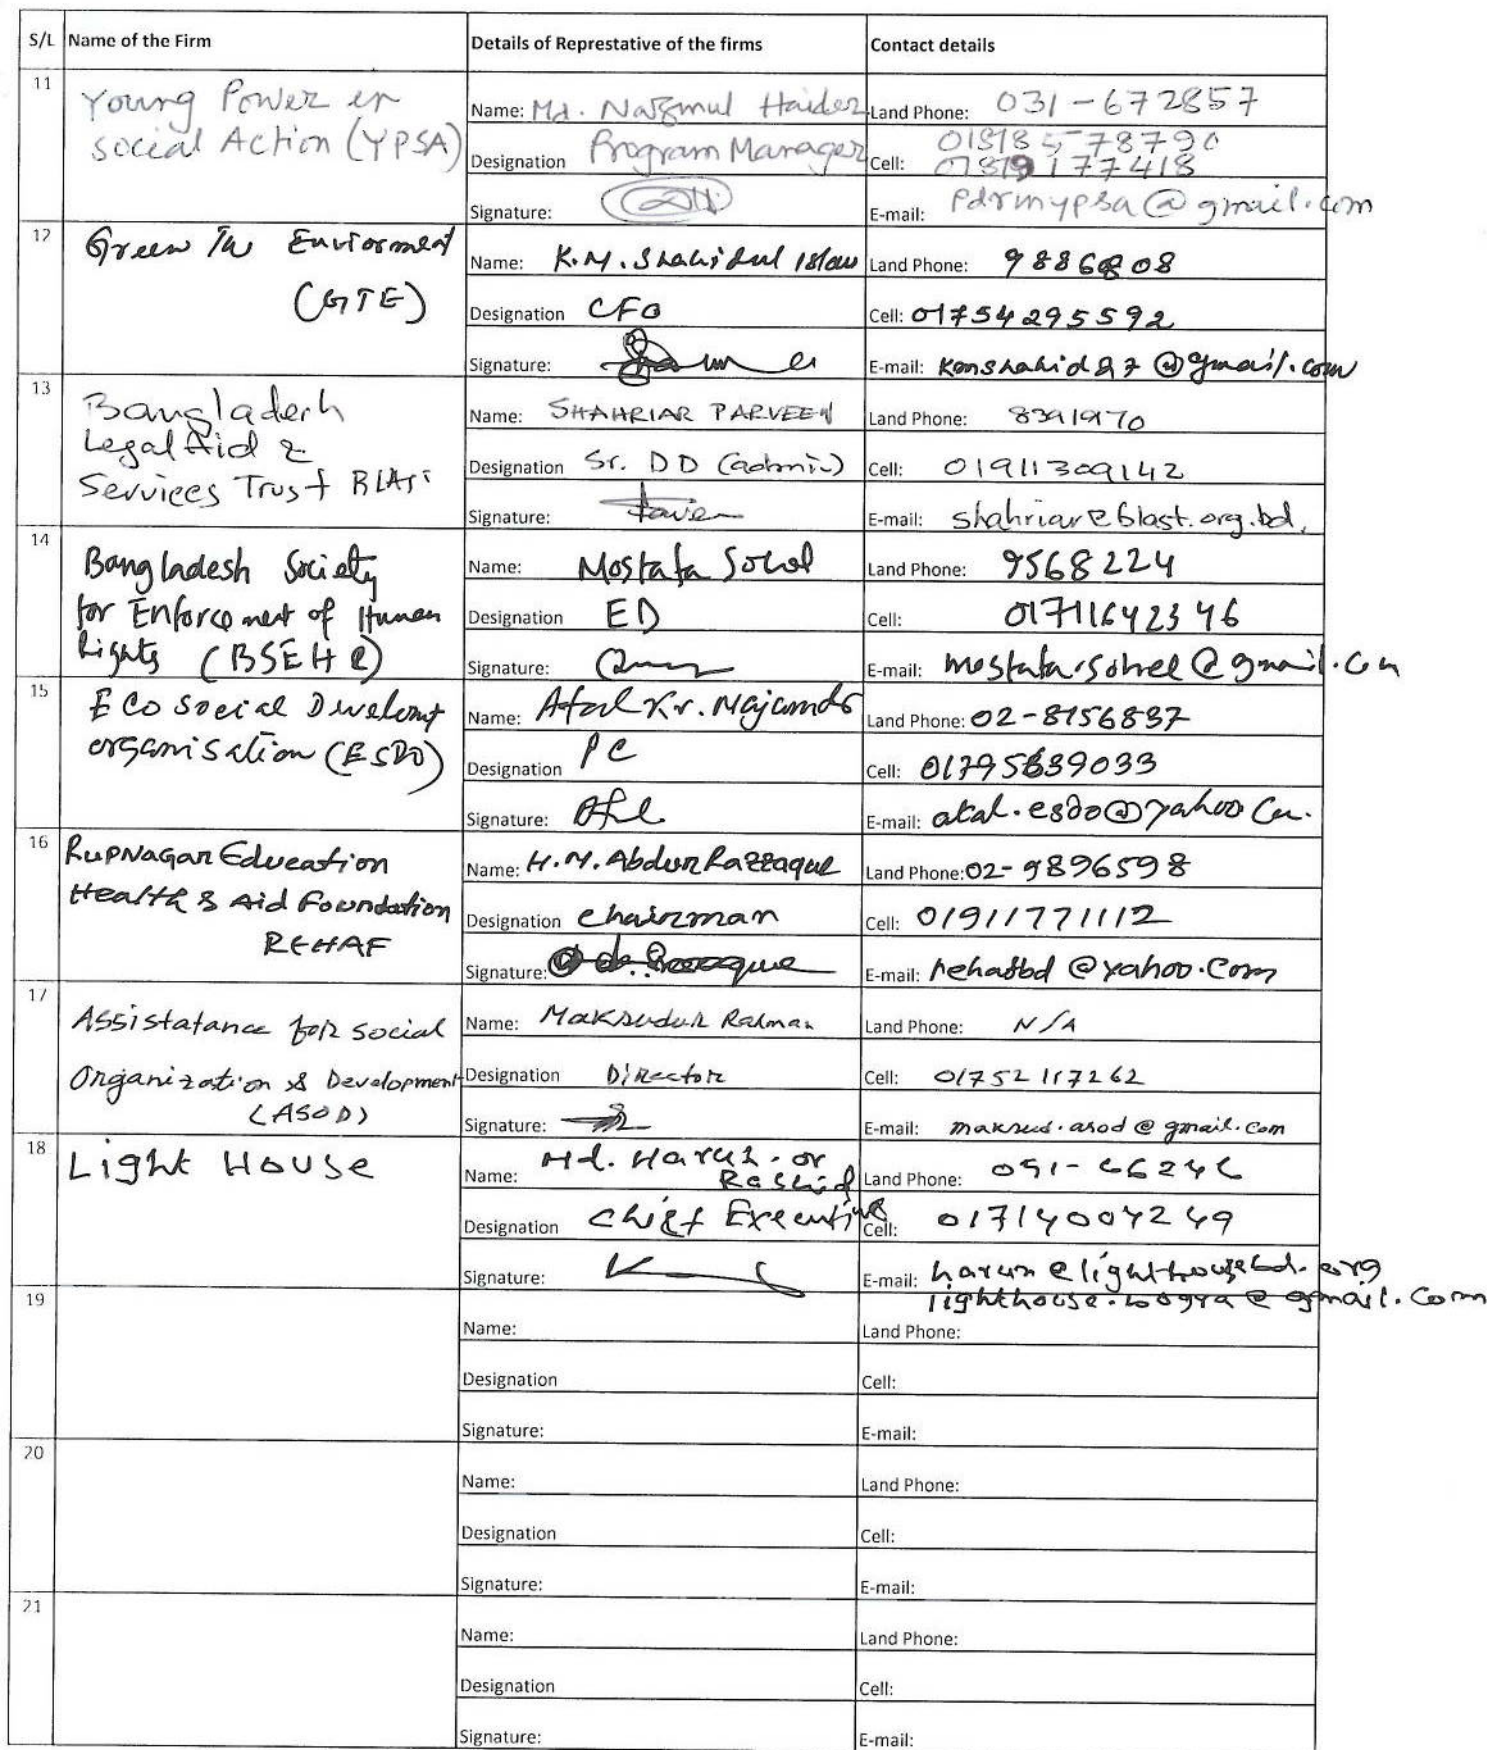 S/L Name of the Firm Details of Represtative of the firms Contact details
11 Young Power in social Action (YPSA)
Name: Md. Nazmul Haider Land Phone: 031-672857
Designation Program Manager Cell: 01818578790
01819177418
Signature: E-mail: pdrmypsa@gmail.com
12 Green The Enviorment (GTE)
Name: K.M. Shahidul Islam Land Phone: 9886808
Designation CFO Cell: 01754295592
Signature: E-mail: @gmail.com
13 Bangladesh Legal Aid & Services Trust BLAST
Name: SHAHRIAR PARVEEN Land Phone: 8391970
Designation Sr. DD (admin) Cell: 01911309142
Signature: E-mail: shahriar@blast.org.bd.
14 Bangladesh Society for Enforcement of Human Rights (BSEHR)
Name: Mostafa Sohel Land Phone: 9568224
Designation ED Cell: 01711642346
Signature: E-mail: mostafa.sohel@gmail.com
15 Eco Social Develomt organisation (ESDO)
Name: Atal Kr. Majumdr Land Phone: 02-8156837
Designation PC Cell: 01795639033
Signature: E-mail: atal.esdo@yahoo.Com
16 RupNagar Education Health & Aid Foundation REHAF
Name: H.M. Abdur Razzaque Land Phone: 02-9896598
Designation chairman Cell: 01911771112
Signature: E-mail: rehafbd@yahoo.Com
17 Assistatance for social Organization & Development (ASOD)
Name: Maksudur Rahman Land Phone: N/A
Designation Director Cell: 01752117262
Signature: E-mail: maksud.asod@gmail.com
18 Light House
Name: Md. Harun-or Rashid Land Phone: 051-66246
Designation Chief Executive Cell: 01714004249
Signature: E-mail: harun@lighthousebd.org
lighthouse.bogra@gmail.com
19
Name: Land Phone:
Designation Cell:
Signature: E-mail:
20
Name: Land Phone:
Designation Cell:
Signature: E-mail:
21
Name: Land Phone:
Designation Cell:
Signature: E-mail: